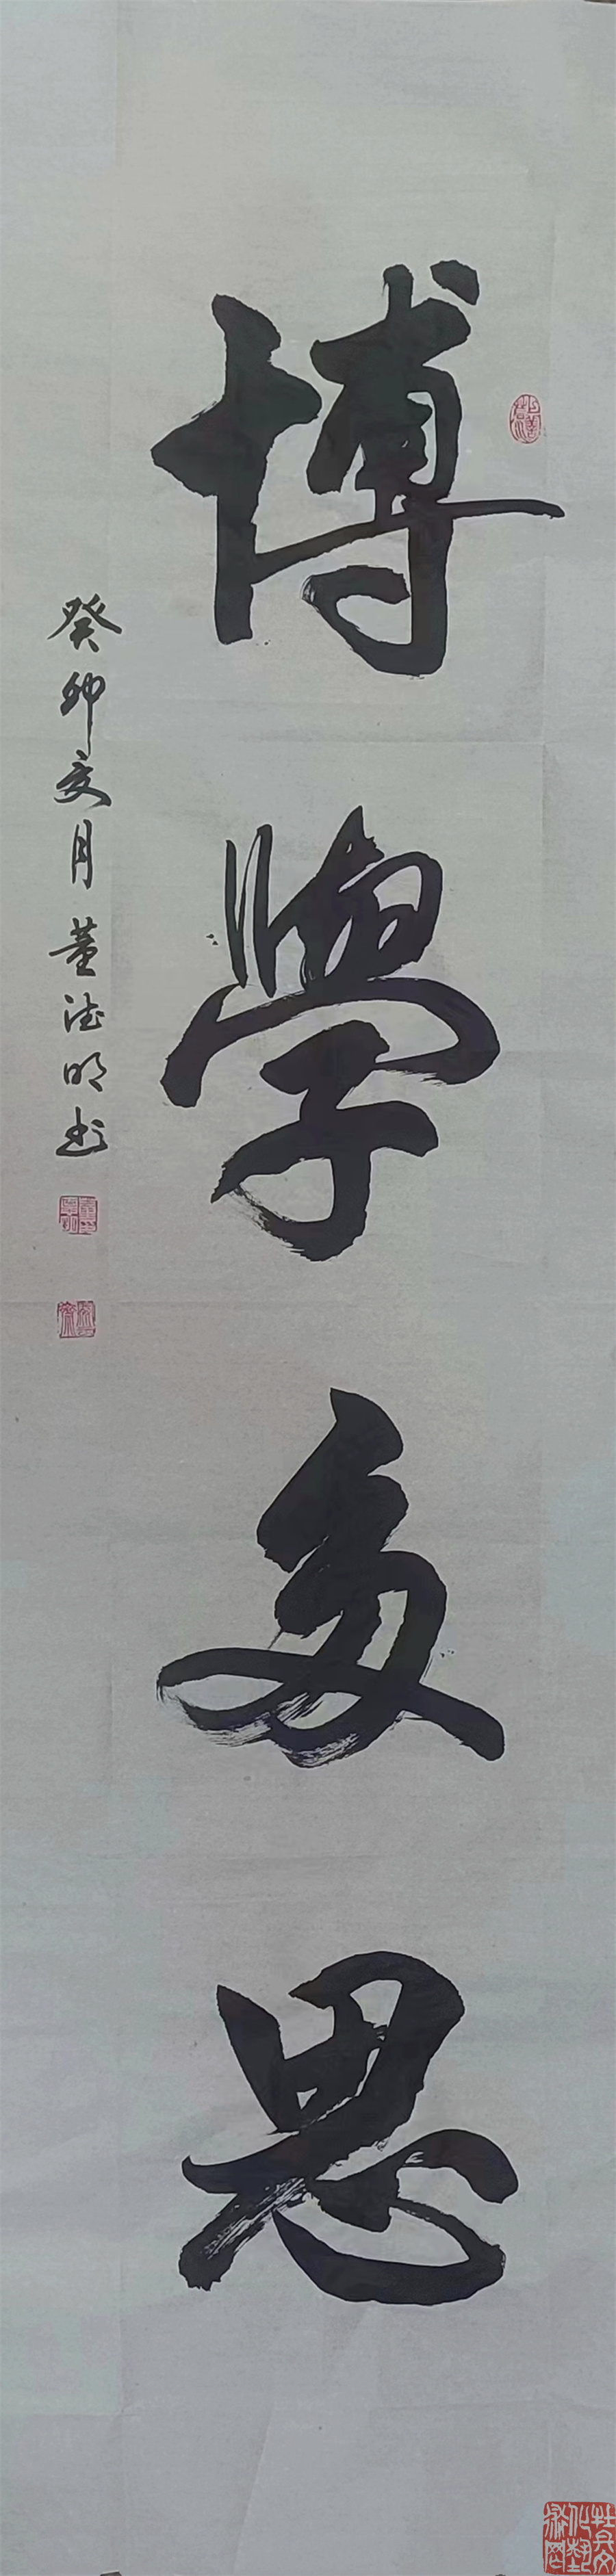 博學多思
癸卯亥月董德明书